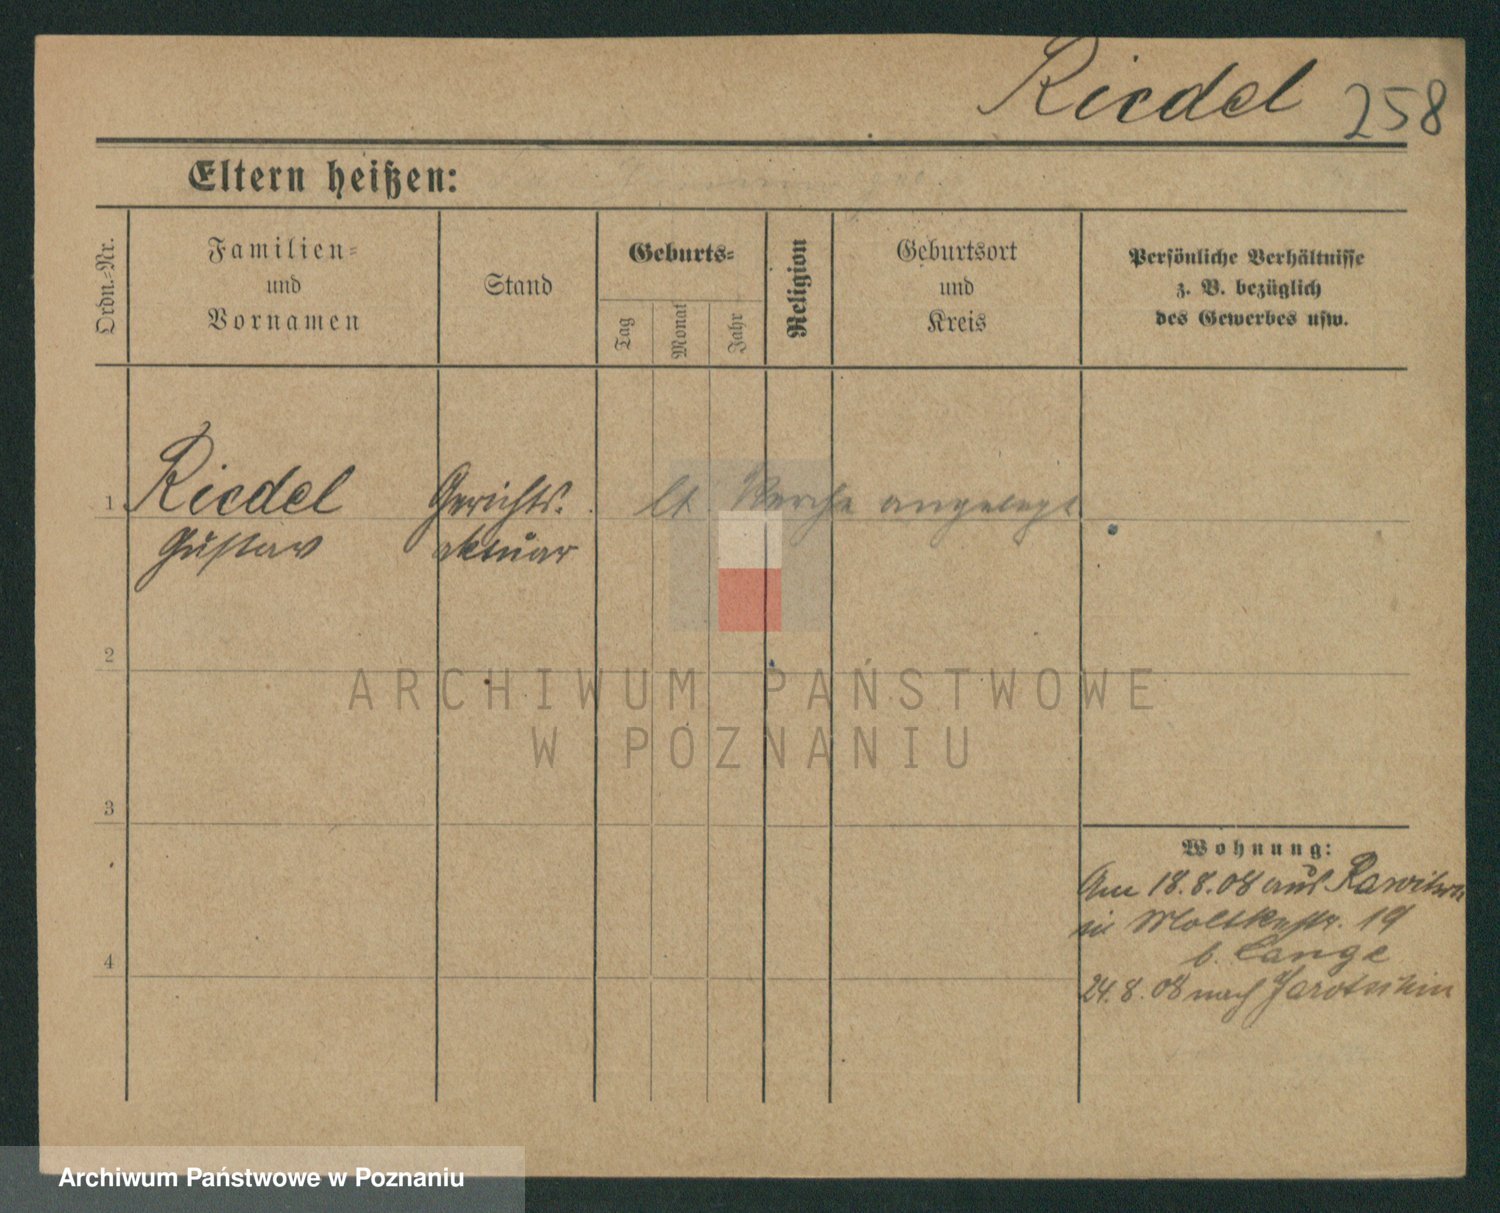 Riedel 258
Eltern heißen:
Ordn.-Nr.
Familien-
und
Vornamen
Stand
Geburts-
Tag
Monat
Jahr
Religion
Geburtsort
und
Kreis
Persönliche Verhältnisse
z. B. bezüglich
des Gewerbes usw.
1 Riedel Gerichts- lt. angelegt
Gustav aktuar
2
3
4
Wohnung:
Am 18.8.08 aus Rawitsch
in Moltkestr. 19
b. Lange
24.8.08 nach Jarotschin
ARCHIWUM PAŃSTWOWE
W POZNANIU
Archiwum Państwowe w Poznaniu